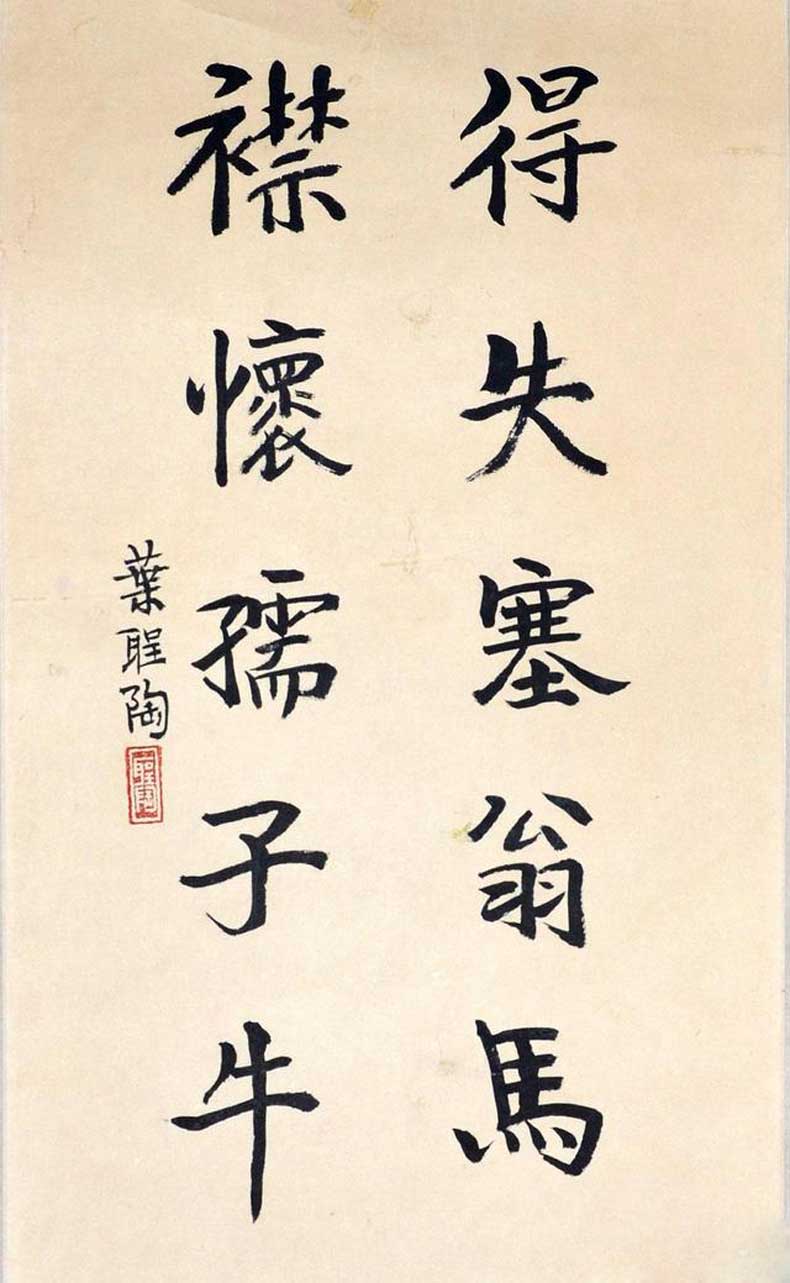 得失塞翁馬
襟懷孺子牛
葉聖陶
聖陶